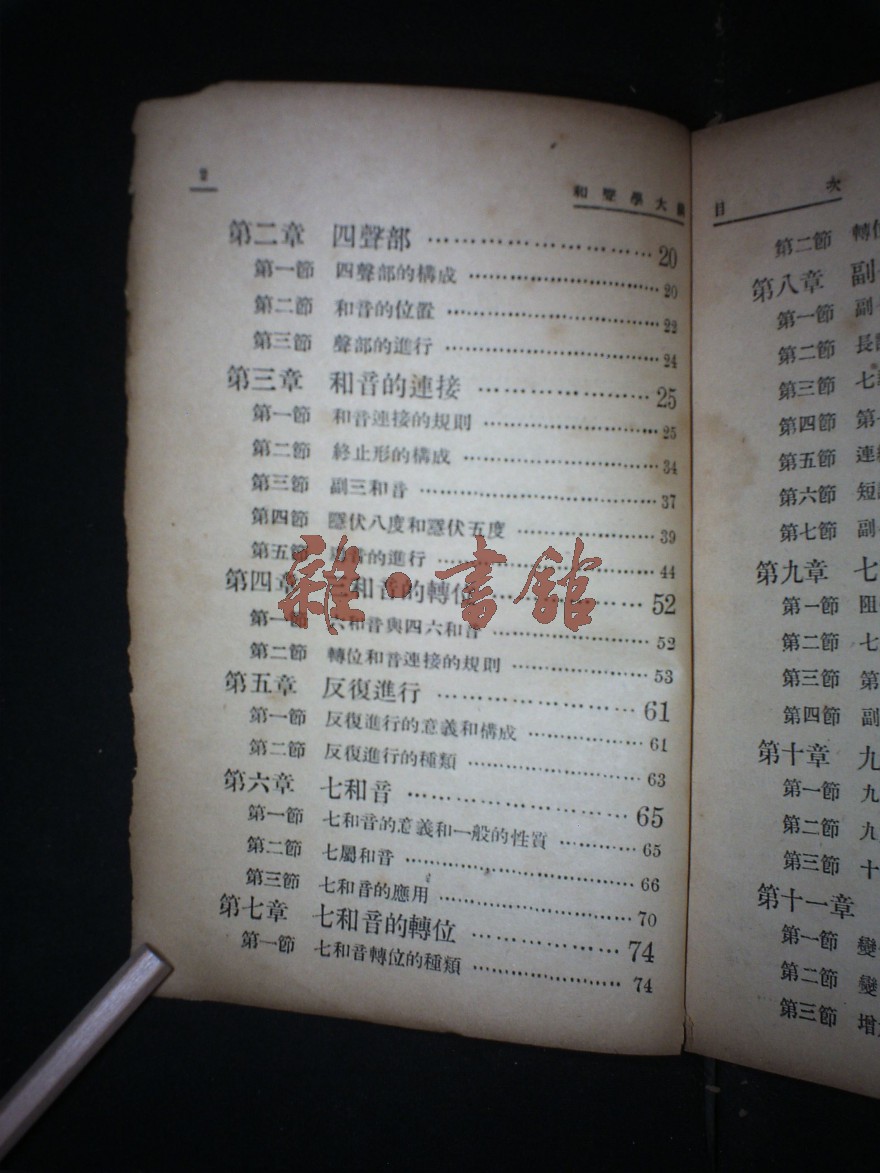 2
和聲學大綱
第二章 四聲部 ……………………… 20
第一節 四聲部的構成 ……………………… 20
第二節 和音的位置 ……………………… 22
第三節 聲部的進行 ……………………… 24
第三章 和音的連接 ……………… 25
第一節 和音連接的規則 ……………………… 25
第二節 終止形的構成 ……………………… 34
第三節 副三和音 ……………………… 37
第四節 隱伏八度和隱伏五度 ……………… 39
第五節 的進行 ……………………… 44
第四章 三和音的轉位 ……………… 52
第一節 六和音與四六和音 ……………… 52
第二節 轉位和音連接的規則 ……………… 53
第五章 反復進行 ……………………… 61
第一節 反復進行的意義和構成 ……………… 61
第二節 反復進行的種類 ……………………… 63
第六章 七和音 ……………………… 65
第一節 七和音的意義和一般的性質 ………… 65
第二節 七屬和音 ……………………… 66
第三節 七和音的應用 ……………………… 70
第七章 七和音的轉位 ……………… 74
第一節 七和音轉位的種類 ……………… 74
雜·書館
目 次
第二節 轉位
第八章 副
第一節 副
第二節 長
第三節 七
第四節 第
第五節 連
第六節 短
第七節 副
第九章 七
第一節 阻
第二節 七
第三節 第
第四節 副
第十章 九
第一節 九
第二節 九
第三節 十
第十一章
第一節 變
第二節 變
第三節 增